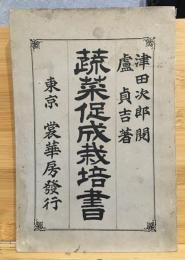 津田次郎閲
盧貞吉著
蔬菜促成栽培書
東京 裳華房發行